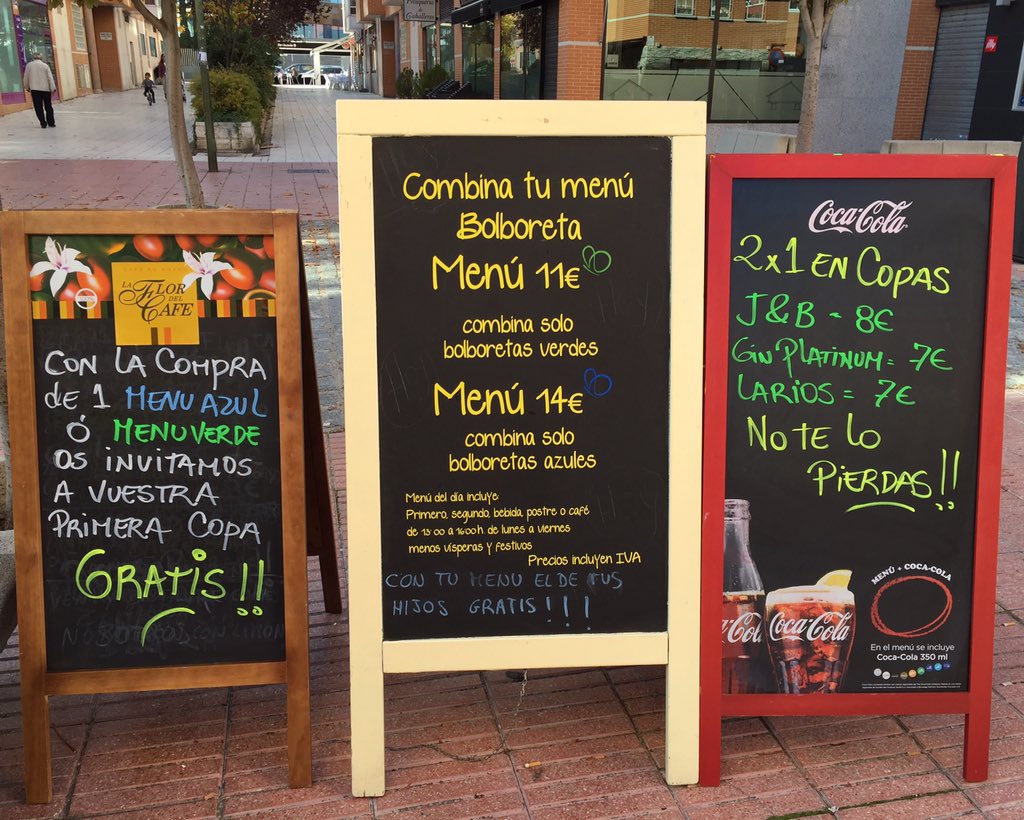 Peluquería
Caballeros
illy
LA
FLOR
DEL
CAFE
CON LA COMPRA
de 1 MENU AZUL
Ó MENU VERDE
OS INVITAMOS
A VUESTRA
PRIMERA COPA
GRATIS!!
Combina tu menú
Bolboreta
Menú 11€
combina solo
bolboretas verdes
Menú 14€
combina solo
bolboretas azules
Menú del día incluye:
Primero, segundo, bebida, postre o café
de 13:00 a 16:00h. de lunes a viernes
menos vísperas y festivos
Precios incluyen IVA
CON TU MENU EL DE TUS
HIJOS GRATIS!!!
Coca-Cola
2x1 EN COPAS
J&B - 8€
Gin PLATINUM = 7€
LARIOS = 7€
NO TE LO
PIERDAS!!
MENÚ + COCA-COLA
Coca-Cola
En el menú se incluye
Coca-Cola 350 ml